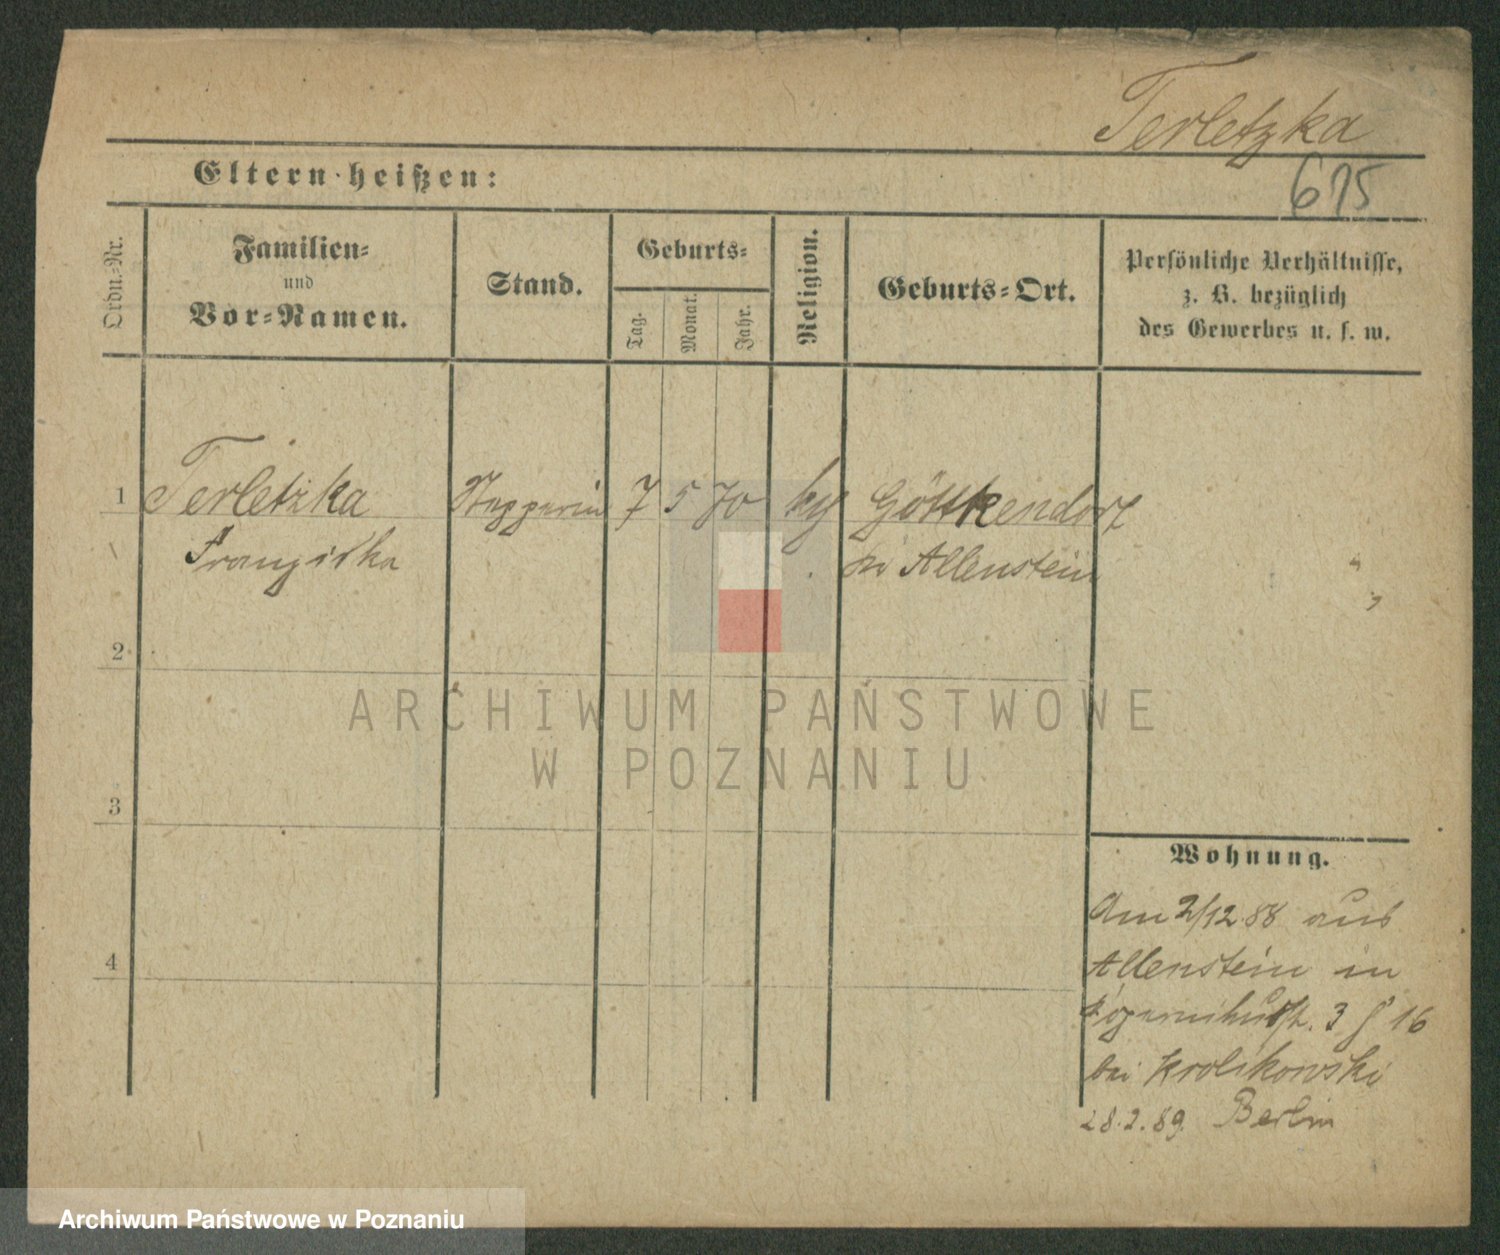 Terletzka
615
Eltern heißen:
Ordn.-Nr.
Familien-
und
Vor-Namen.
Stand.
Geburts-
Tag.
Monat.
Jahr.
Religion.
Geburts-Ort.
Persönliche Verhältnisse,
z. B. bezüglich
des Gewerbes u. s. w.
1 Terletzka Stepperin 7 5 70 Göttkendorf
Franziska bei Allenstein
2
3
4
Wohnung.
Am 2/12 88 aus
Allenstein in
3 16
bei Krolikowski
28.2.89. Berlin
ARCHIWUM PAŃSTWOWE
W POZNANIU
Archiwum Państwowe w Poznaniu